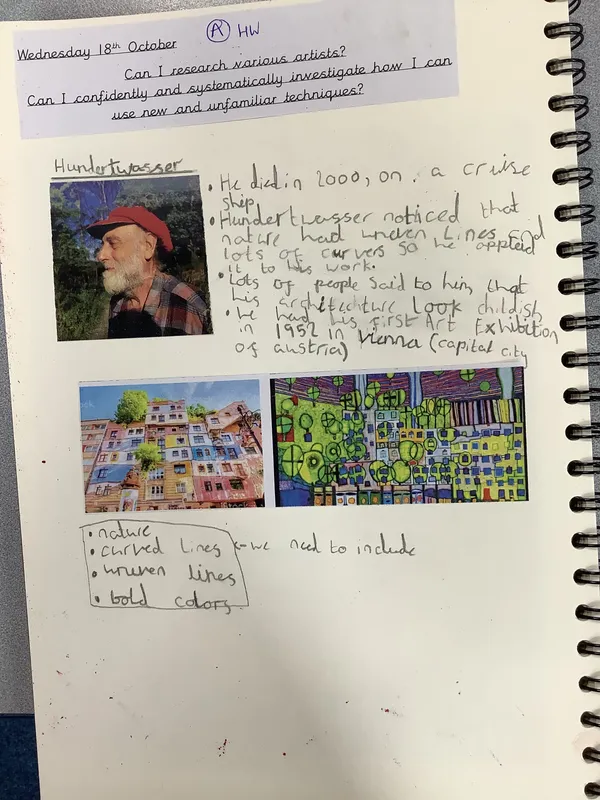 Wednesday 18th October
A HW
Can I research various artists?
Can I confidently and systematically investigate how I can
use new and unfamiliar techniques?
Hundertwasser
• He died in 2000, on . a cruise
ship
• Hundertwasser noticed that
nature had uneven lines and
lots of curvers so he applied
it to his work.
• Lots of people said to him that
his architecture look childish
• he had his first Art Exhibition
in 1952 in Vienna (capital city
of austria)
• nature
• curved lines ← we need to include
• uneven lines
• bold colors